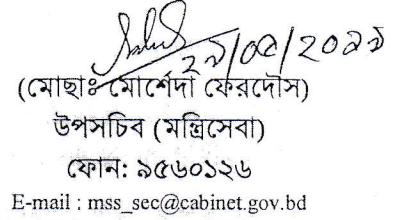 ২৯/০৫/২০১৯
(মোছাঃ মোর্শেদা ফেরদৌস)
উপসচিব (মন্ত্রিসেবা)
ফোন: ৯৫৬০১২৬
E-mail : mss_sec@cabinet.gov.bd